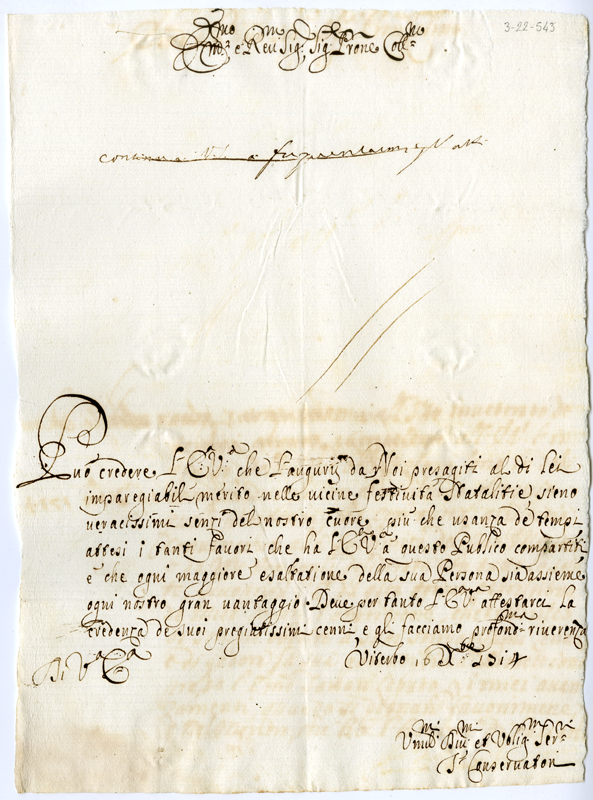 3-22-543
Em.mo e Reu Sig. Sig Prone Coll.mo
Può credere l'E.V.a che tauguri da Noi presagiti al di lei
impareggiabil merito nelle uicine festiuità Natalitie sieno
ueracissimi sensi del nostro cuore più che usanza de tempi
attesi i tanti fauori che ha l'E.V.a a questo Publico compartiti
e che ogni maggiore esaltatione della sua Persona sia assieme
ogni nostro gran uantaggio. Deue per tanto l'E.V.a attestarci la
credenza de suoi pregiatissimi cenni e gli facciamo profond.ma riuerenza
Di V.a E.a Viterbo 16 X.bre
Seru.ri
Conseruatori